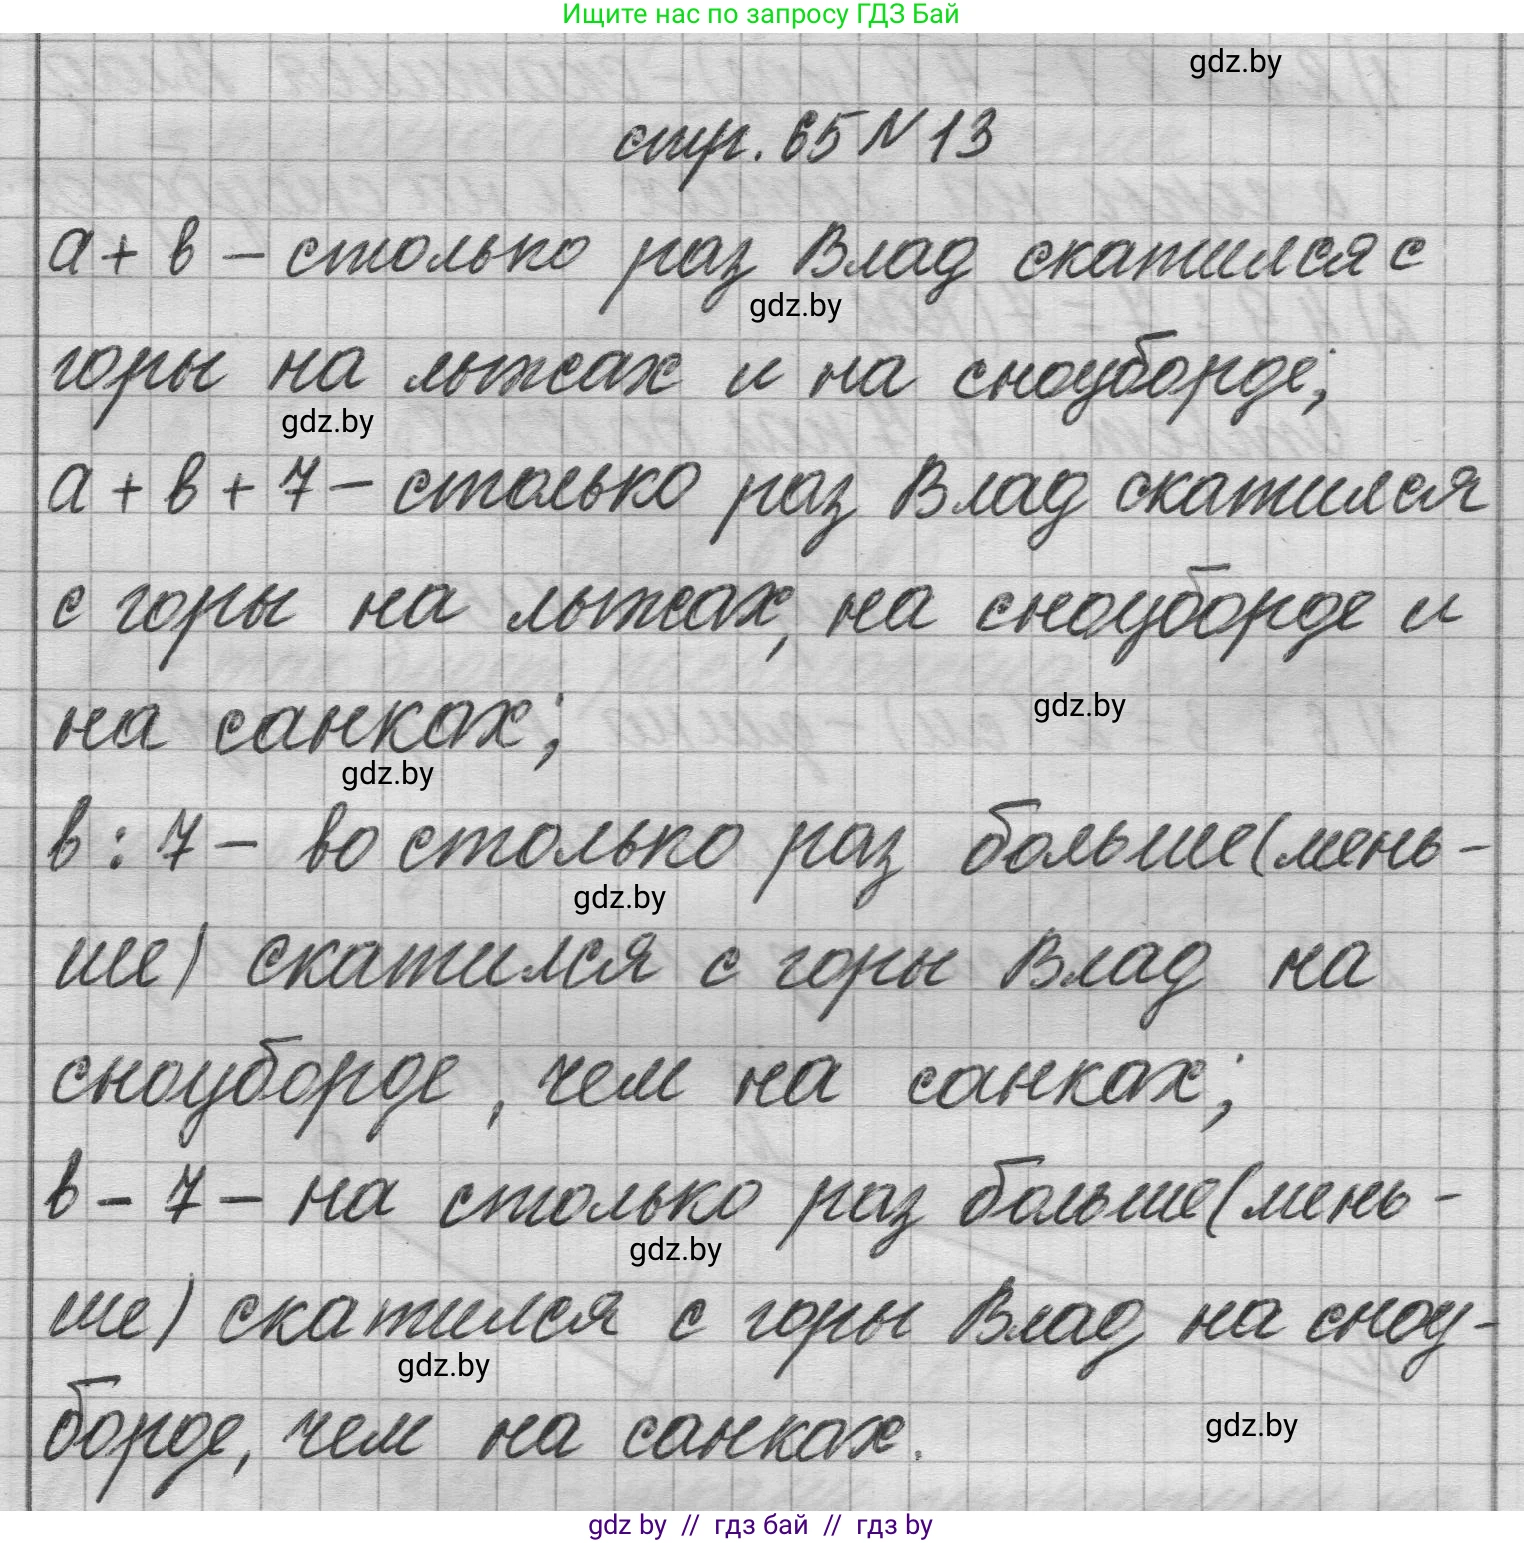 Ищите нас по запросу ГДЗ Бай
gdz.by
стр. 65 N 13
а + в – столько раз Влад скатился с
gdz.by
горы на лыжах и на сноуборде;
gdz.by
а + в + 7 – столько раз Влад скатился
с горы на лыжах, на сноуборде и
gdz.by
на санках;
gdz.by
в : 7 – во столько раз больше (мень-
gdz.by
ше) скатился с горы Влад на
сноуборде, чем на санках;
в – 7 – на столько раз больше (мень-
gdz.by
ше) скатился с горы Влад на сноу-
gdz.by
борде, чем на санках.
gdz.by
gdz by // гдз бай // гдз by